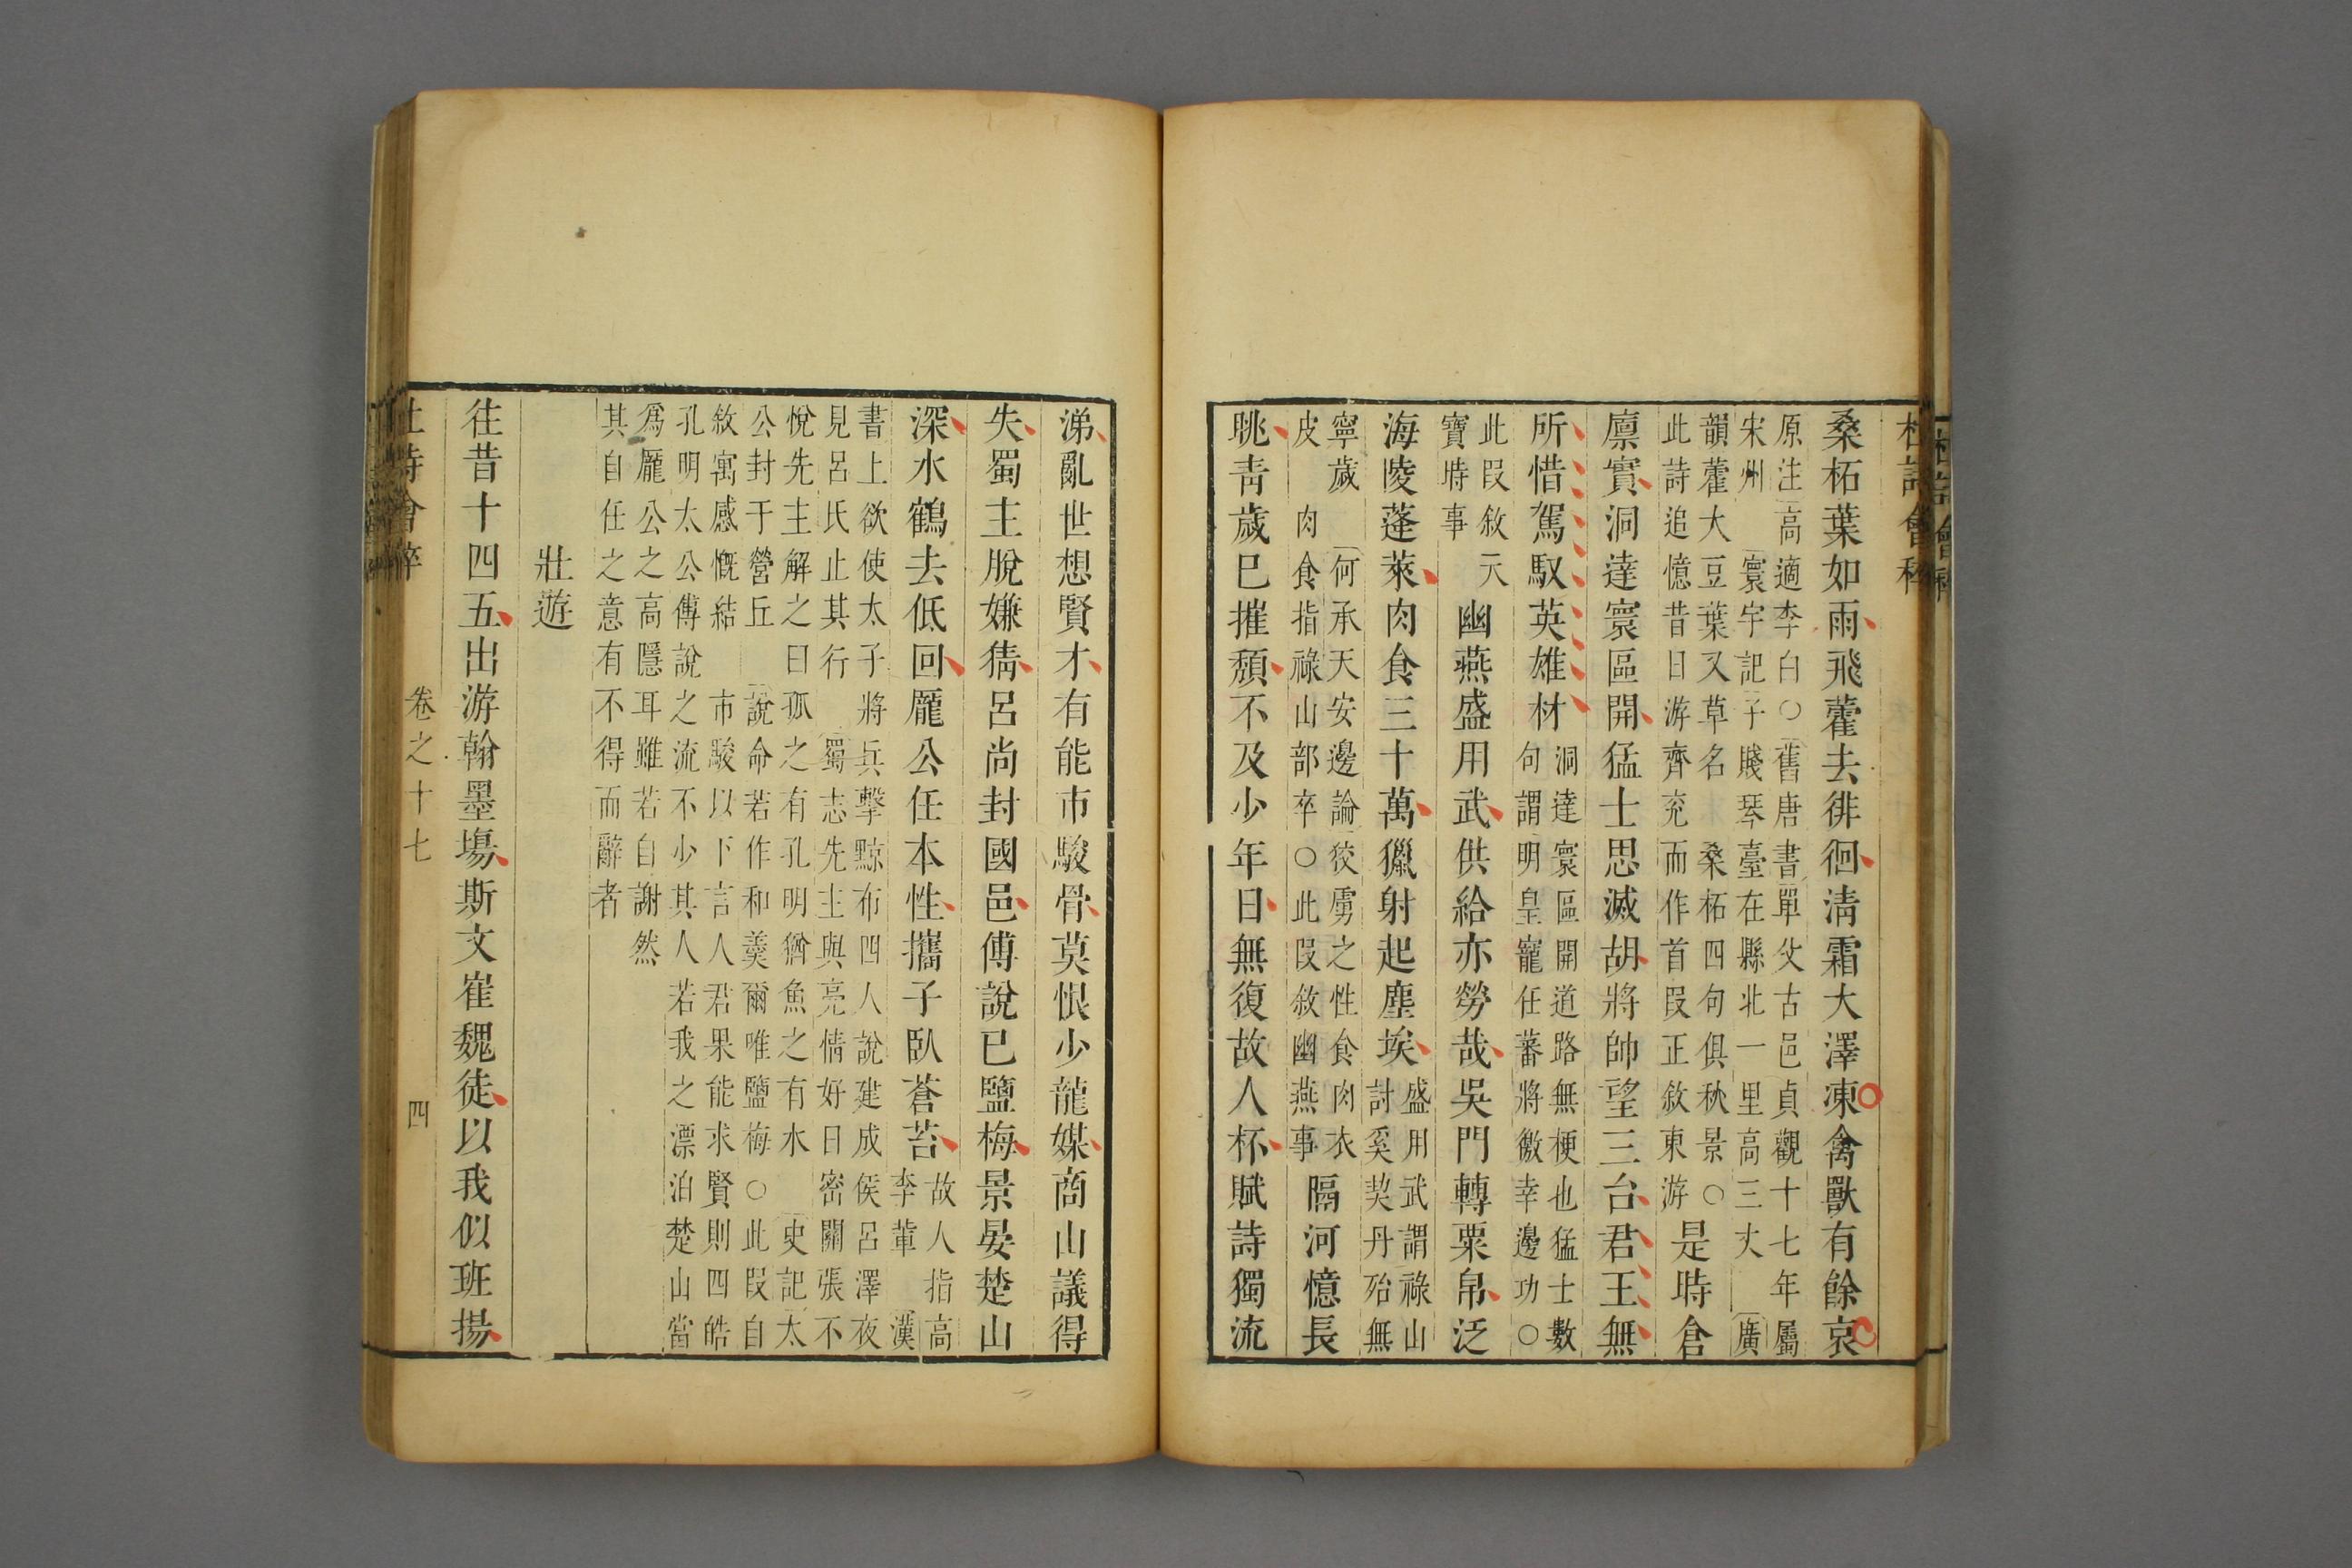 杜詩會稡
桑柘葉如雨飛藿去徘徊清霜大澤凍禽獸有餘哀
原注高適李白○舊唐書單父古邑貞觀十七年屬
宋州 寰宇記子賤琴臺在縣北一里高三丈 廣
韻藿大豆葉又草名 桑柘四句俱秋景○
此詩追憶昔日游齊兖而作首段正敘東游
是時倉
廪實洞達寰區開猛士思滅胡將帥望三台君王無
所惜駕馭英雄材
洞達寰區開道路無梗也猛士數
句謂明皇寵任蕃將徼幸邊功○
此段敘天
寶時事
幽燕盛用武供給亦勞哉吳門轉粟帛泛
海陵蓬萊肉食三十萬獵射起塵埃
盛用武謂祿山
討奚契丹殆無
寧歲 何承天安邊論狡虜之性食肉衣
皮 肉食指祿山部卒○此段敘幽燕事
隔河憶長
眺青歲已摧頹不及少年日無復故人杯賦詩獨流
涕亂世想賢才有能市駿骨莫恨少龍媒商山議得
失蜀主脫嫌猜呂尚封國邑傅說已鹽梅景晏楚山
深水鶴去低回龐公任本性攜子臥蒼苔
故人指高
李軰 漢
書上欲使太子將兵擊黥布四人說建成侯呂澤夜
見呂氏止其行 蜀志先主與亮情好日密關張不
悅先主解之曰孤之有孔明猶魚之有水 史記太
公封于營丘 說命若作和羹爾唯鹽梅○此段自
敘寓感慨結 市駿以下言人君果能求賢則四皓
孔明太公傅說之流不少其人若我之漂泊楚山當
為龐公之高隱耳雖若自謝然
其自任之意有不得而辭者
壯遊
往昔十四五出游翰墨塲斯文崔魏徒以我似班揚
杜詩會稡 卷之十七 四